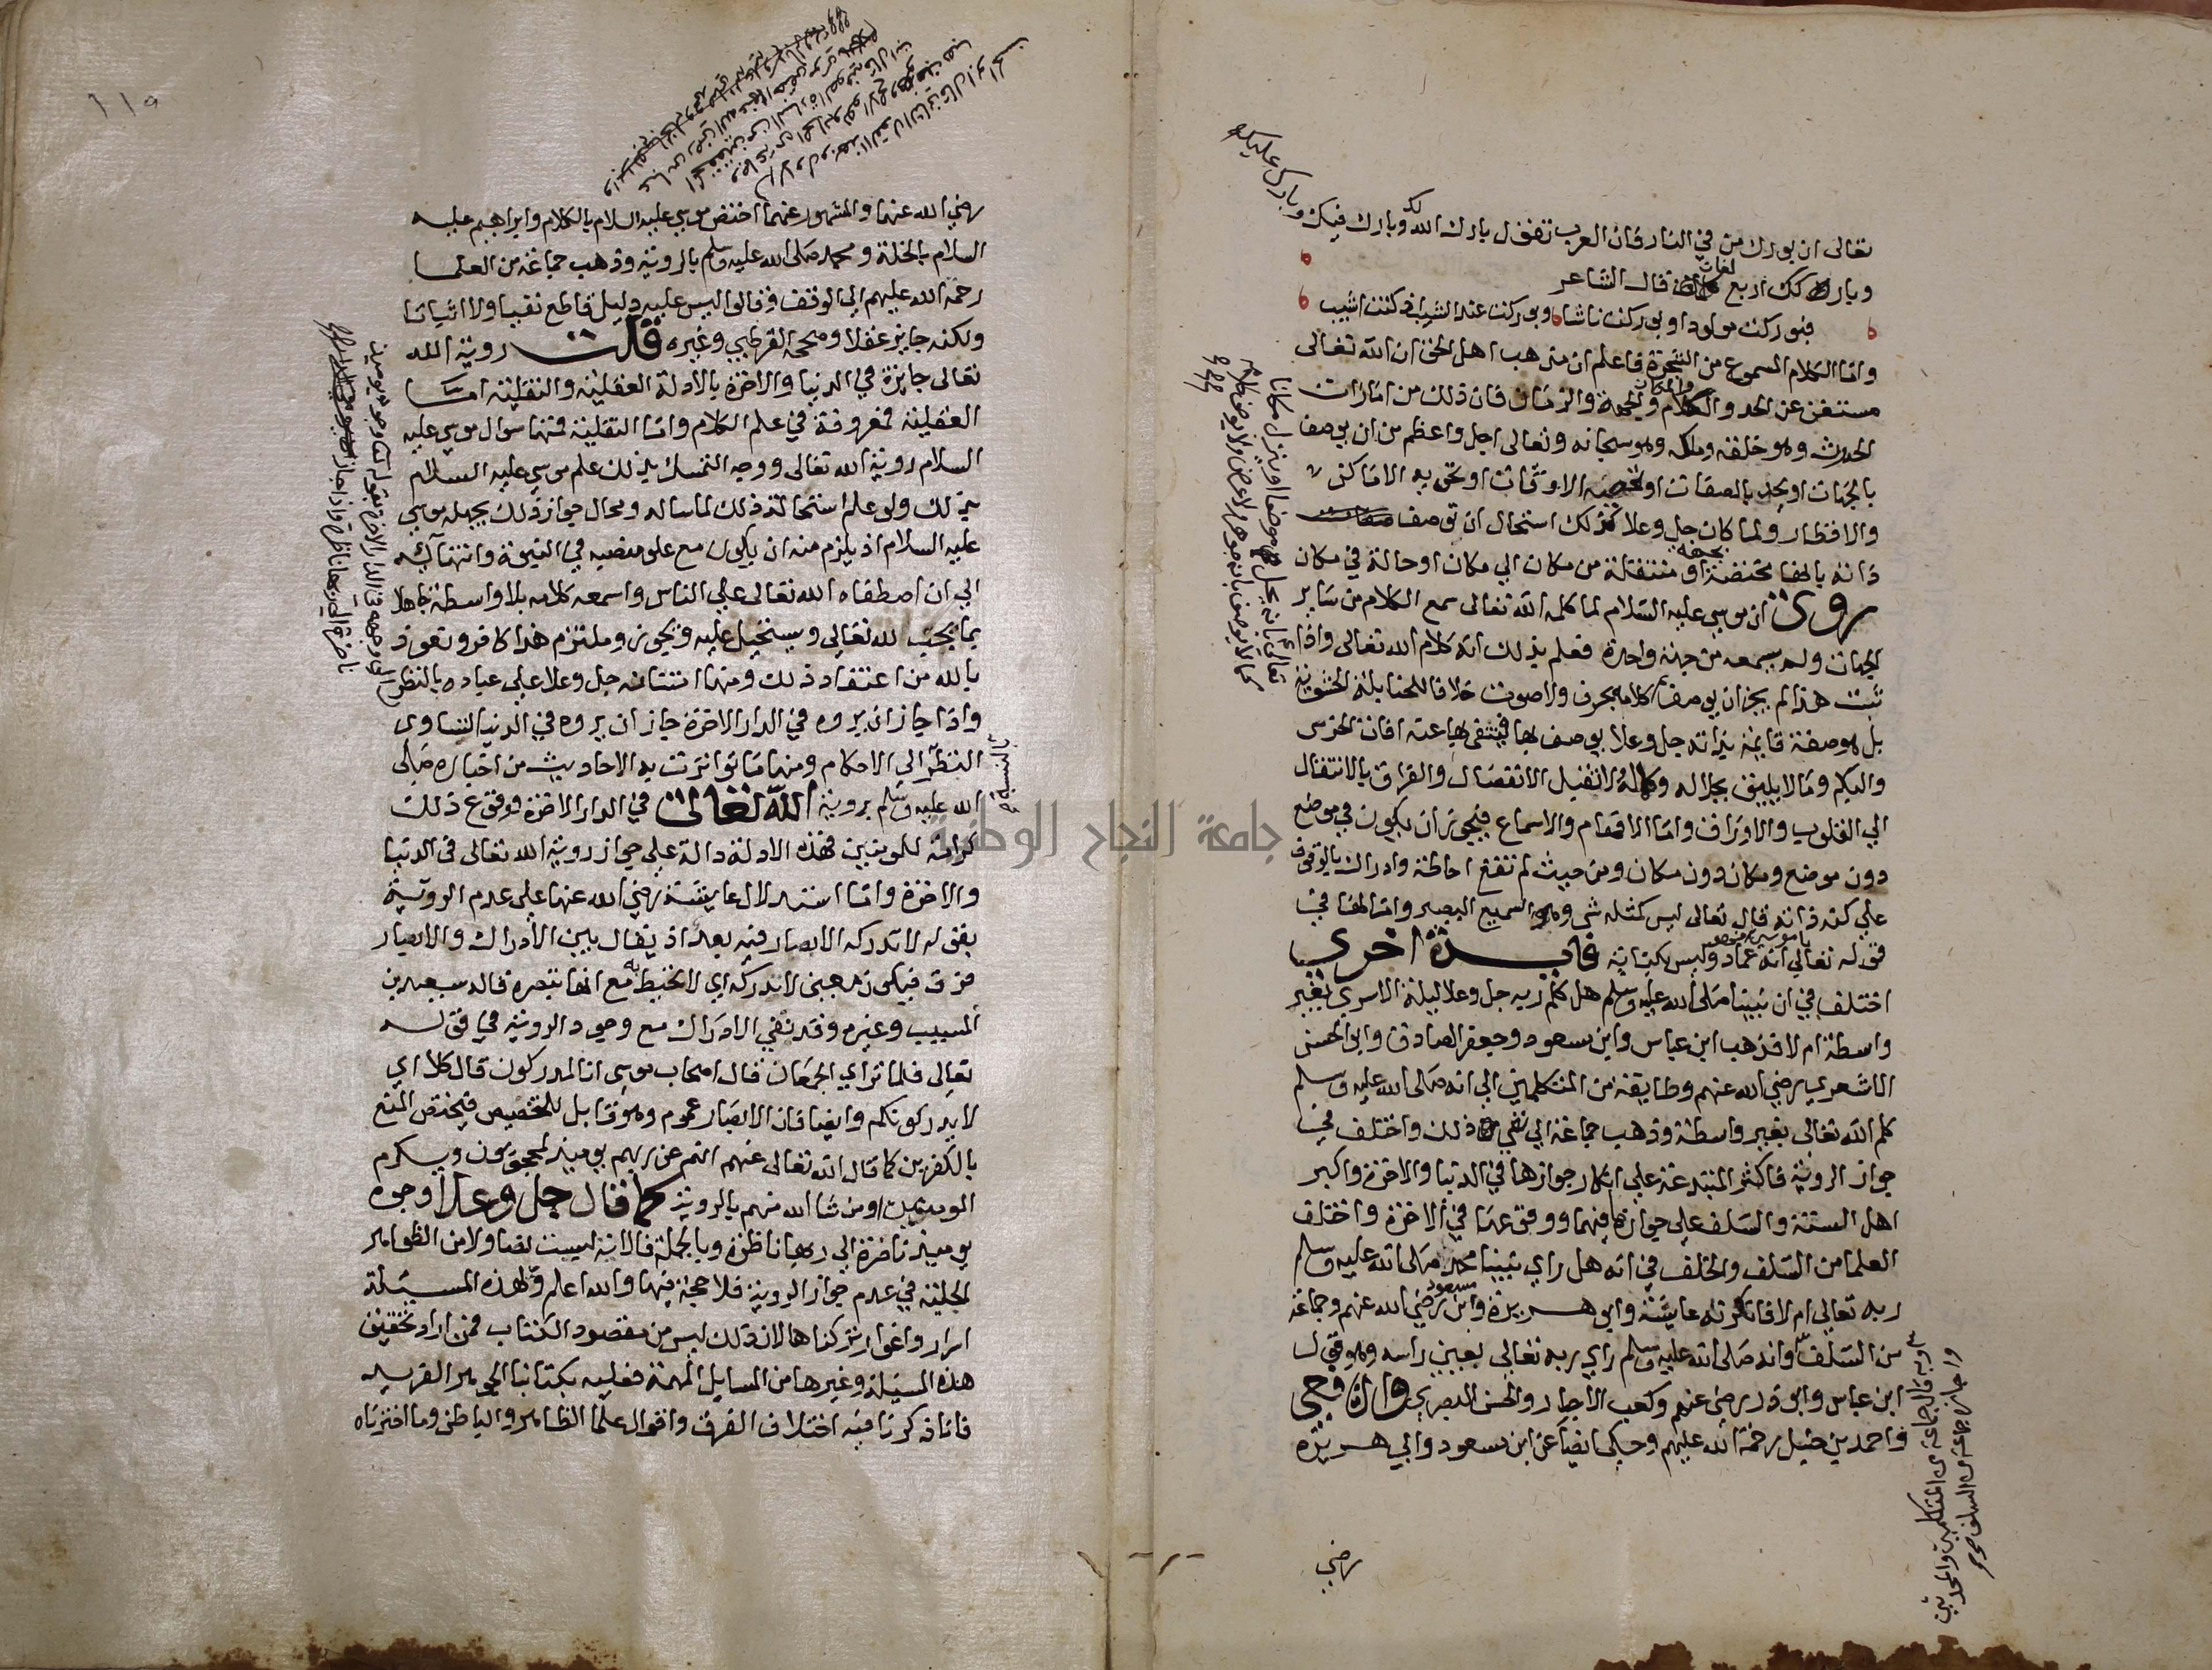 تعالى ان بورك من في النار فان العرب تقول بارك الله لك وبارك فيك وبارك عليك
وباركك اربع لغات قال الشاعر
فبوركت مولودا وبوركت ناشا وبوركت عند الشيب اذ كنت اشيب
واما الكلام المسموع من الشجرة فاعلم ان مذهب اهل الحق ان الله تعالى
مستغن عن الحد والكلام والمكان والجهة والزمان فان ذلك من امارات
الحدث وهو خلقه وملكه وهو سبحانه وتعالى اجل واعظم من ان يوصف
بالجهات او يحد بالصفات او تحصيه الاوقات او تحويه الاماكن
والاقطار ولما كان جل وعلا كذلك استحال ان توصف
ذاته بانها مختصة بجهة او منتقلة من مكان الي مكان او حالة في مكان
روي ان موسي عليه السلام لما كلمه الله تعالى سمع الكلام من ساير
الجهات ولم يسمعه من جهة واحدة فعلم بذلك انه كلام الله تعالى واذا
ثبت هذا لم يجز ان يوصف كلامه بحرف ولا صوت خلافا للحنابلة الحشوية
بل هو صفة قايمة بذاته جل وعلا يوصف بها فينتفي بها عنه افات الخرس
والبكم وما لا يليق بجلاله وكماله لا تقبل الانفصال والفراق بالانتقال
الي القلوب والاوراق واما الافهام والاسماع فيجوز ان يكون في موضع
دون موضع ومكان دون مكان ومن حيث لم تقع احاطة وادراك بالوقوف
علي كنه ذاته قال تعالى ليس كمثله شي وهو السميع البصير واما الها في
قوله تعالي يا موسي انه عماد وليس بكناية فايدة اخري
اختلف في ان نبينا صلى الله عليه وسلم هل كلم ربه جل وعلا ليلة الاسري بغير
واسطة ام لا فذهب ابن عباس وابن مسعود وجعفر الصادق وابو الحسن
الاشعري رضي الله عنهم وطايفة من المتكلمين الي انه صلى الله عليه وسلم
كلم الله تعالى بغير واسطة وذهب جماعة الي نفي ذلك واختلف في
جواز الروية فاكثر المبتدعة علي انكار جوازها في الدنيا والاخرة واكبر
اهل السنة والسلف علي جوازها فيهما ووقوعها في الاخرة واختلف
العلما من السلف والخلف في انه هل راي نبينا محمد صلى الله عليه وسلم
ربه تعالي ام لا فانكرته عايشة وابو هريرة وابن مسعود رضي الله عنهم وجماعة
من السلف وانه صلى الله عليه وسلم راي ربه تعالي بعيني راسه وهو قول
ابن عباس وابو ذر رضي عنهم وكعب الاحبار والحسن البصري
واحمد بن حنبل رحمة الله عليهم وحكي ايضا عن ابن مسعود وابي هريرة
رضي
وبه قال جماعة من المتكلمين والمحدثين
واجازه جماعة من السلف
١١٥
رضي الله عنهما والمشهور عنهما اختص موسي عليه السلام بالكلام وابراهيم عليه
السلام بالخلة ومحمد صلى الله عليه وسلم بالروية وذهب جماعة من العلما
رحمة الله عليهم الي الوقف وقالوا ليس عليه دليل قاطع نفيا ولا اثباتا
ولكنه جايز عقلا وصححه القرطبي وغيره قلت روية الله
تعالى جايزة في الدنيا والاخرة بالادلة العقلية والنقلية اما
العقلية فمعروفة في علم الكلام واما النقلية فمنها سوال موسي عليه
السلام روية الله تعالى ووجه التمسك بذلك علم موسي عليه السلام
بذلك ولو علم استحالة ذلك لما ساله ومحال جواز ذلك يجهله موسي
عليه السلام اذ يلزم منه ان يكون مع علو منصبه في النبوة وانتهائه
الي ان اصطفاه الله تعالى علي الناس واسمعه كلامه بلا واسطة جاهلا
بما يجب لله تعالي ويستحيل عليه ويجوز وملتزم هذا كافر ونعوذ
بالله من اعتقاد ذلك ومنها امتنانه جل وعلا علي عباده بالنظر
واذا جاز ان يروه في الدار الاخرة جاز ان يروه في الدنيا لتساوي
النظر الي الاحكام ومنها ما تواترت به الاحاديث من اخباره صلى
الله عليه وسلم بروية الله تعالى في الدار الاخرة ووقوع ذلك
كرامة للمومنين فهذه الادلة دالة علي جواز روية الله تعالى في الدنيا
والاخرة واما استدلال عايشة رضي الله عنها علي عدم الروية
بقوله لا تدركه الابصار فيه بعد اذ يقال بين الادراك والابصار
فرق فيكون معني لا تدركه اي لا تحيط به مع انها تبصره قاله سعيد بن
المسيب وغيره وقد نفي الادراك مع وجود الروية في قوله
تعالي فلما تراي الجمعان قال اصحاب موسي انا لمدركون قال كلا اي
لا يدركونكم وايضا فان الابصار عموم وهو قابل للتخصيص فيختص المنع
بالكافرين كما قال الله تعالى عنهم انهم عن ربهم يوميذ لمحجوبون ويكرم
المومنين او من شا الله منهم بالروية كما قال جل وعلا وجوه
يوميذ ناضرة الي ربها ناظرة وبالجملة فالاية ليست نصا ولا من الظواهر
الجلية في عدم جواز الروية فلا حجة فيها والله اعلم ولهذه المسيلة
اسرار واغوار تركناها لان ذلك ليس من مقصود الكتاب فمن اراد تحقيق
هذه المسيلة وغيرها من المسايل المهمة فعليه بكتابنا الجوهر الفريد
فانا ذكرنا فيه اختلاف الفرق واقوال علما الظاهر والباطن وما اخترناه
جامعة النجاح الوطنية